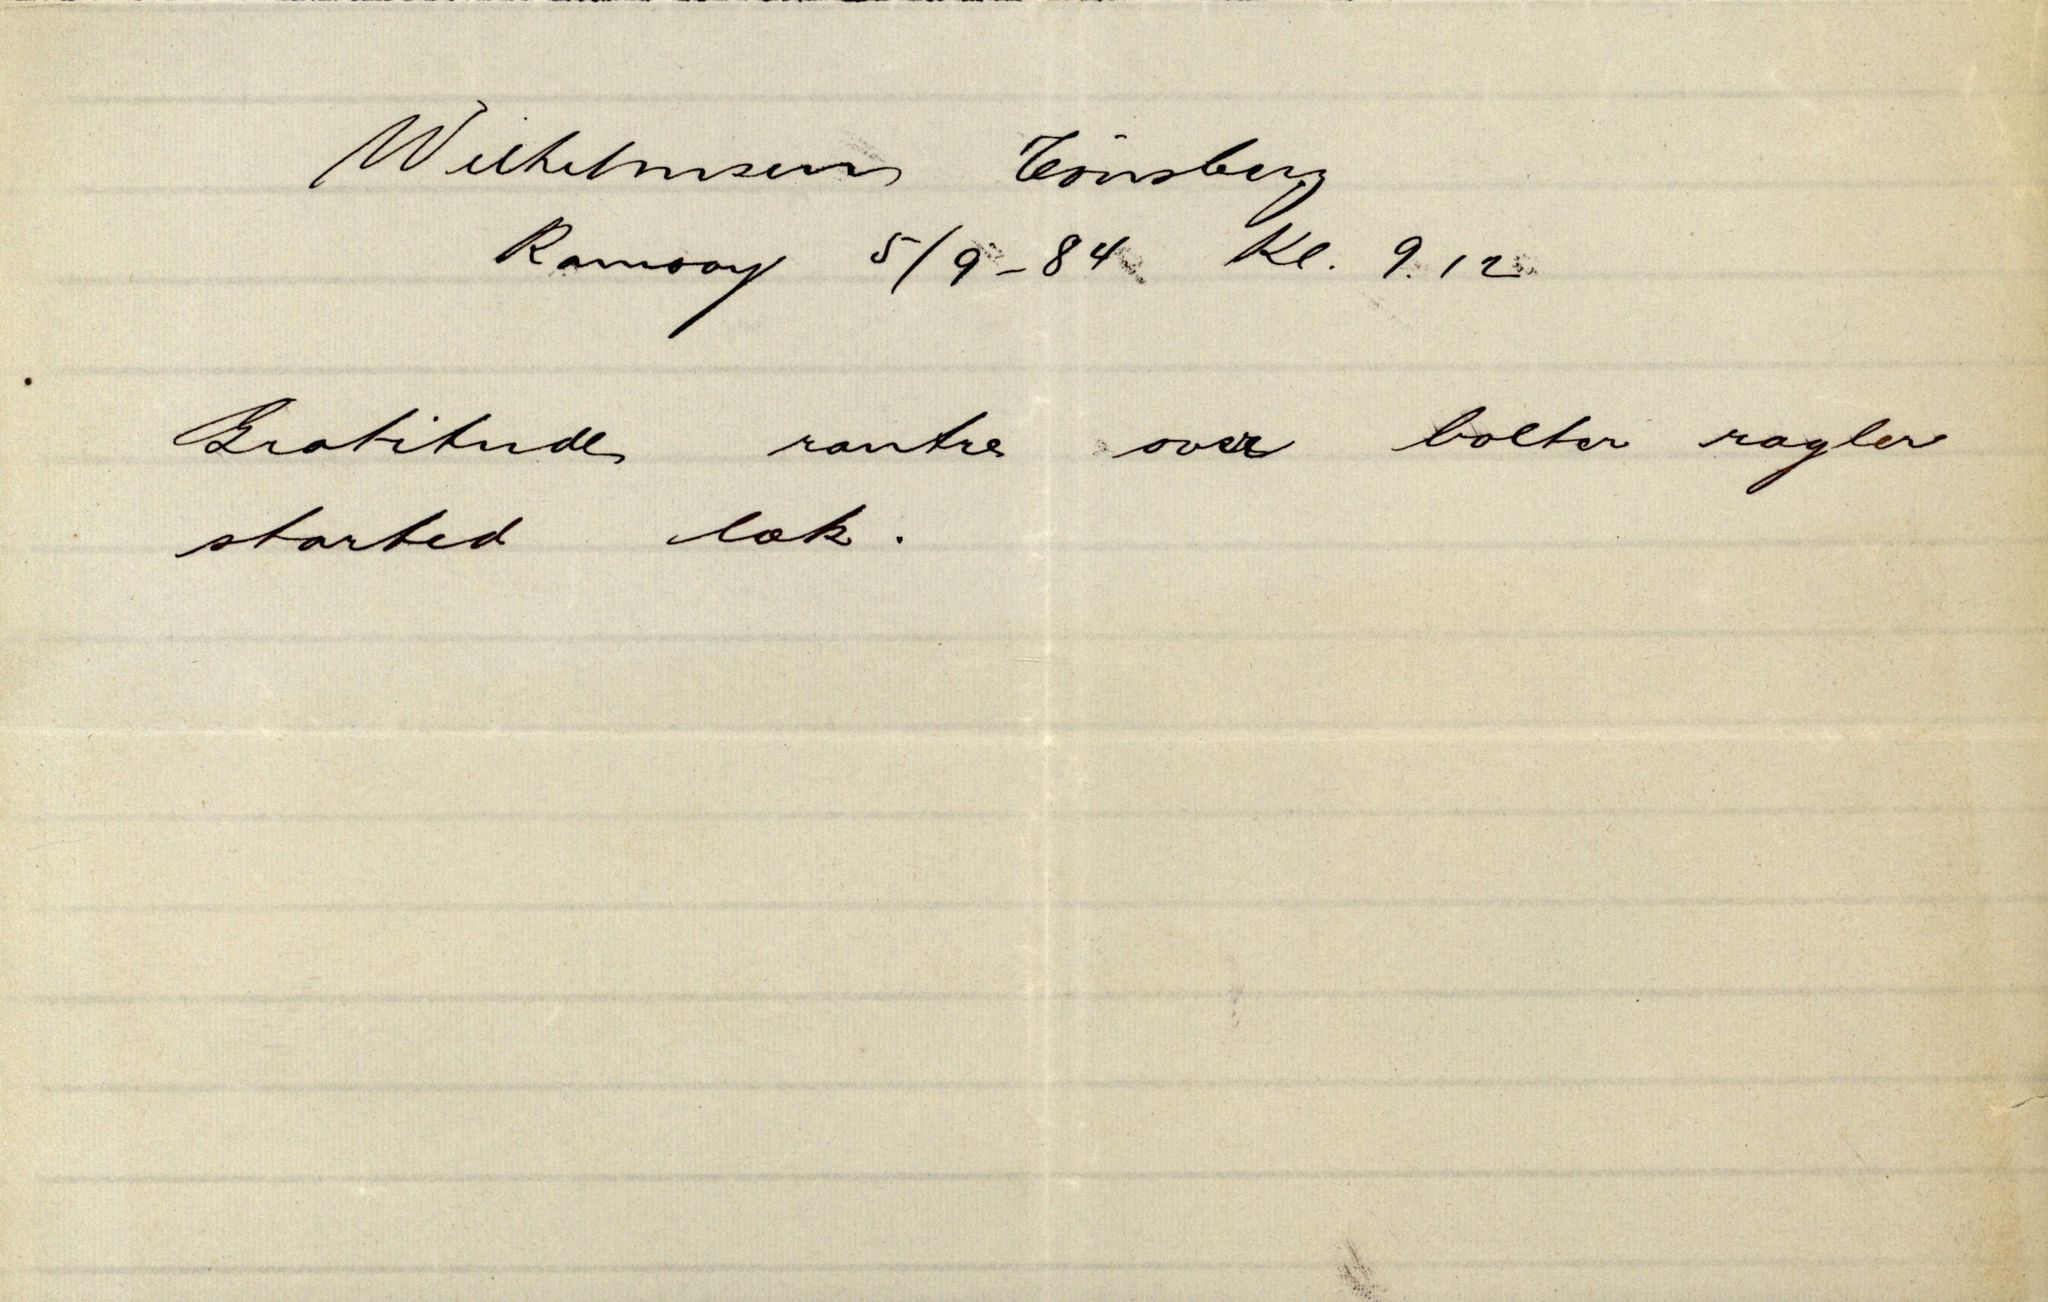 Wilhelmsen Tönsberg
Ramsay 5/9-84 Kl. 9.12
Gratitude rantre over bolter nagler
started læk.